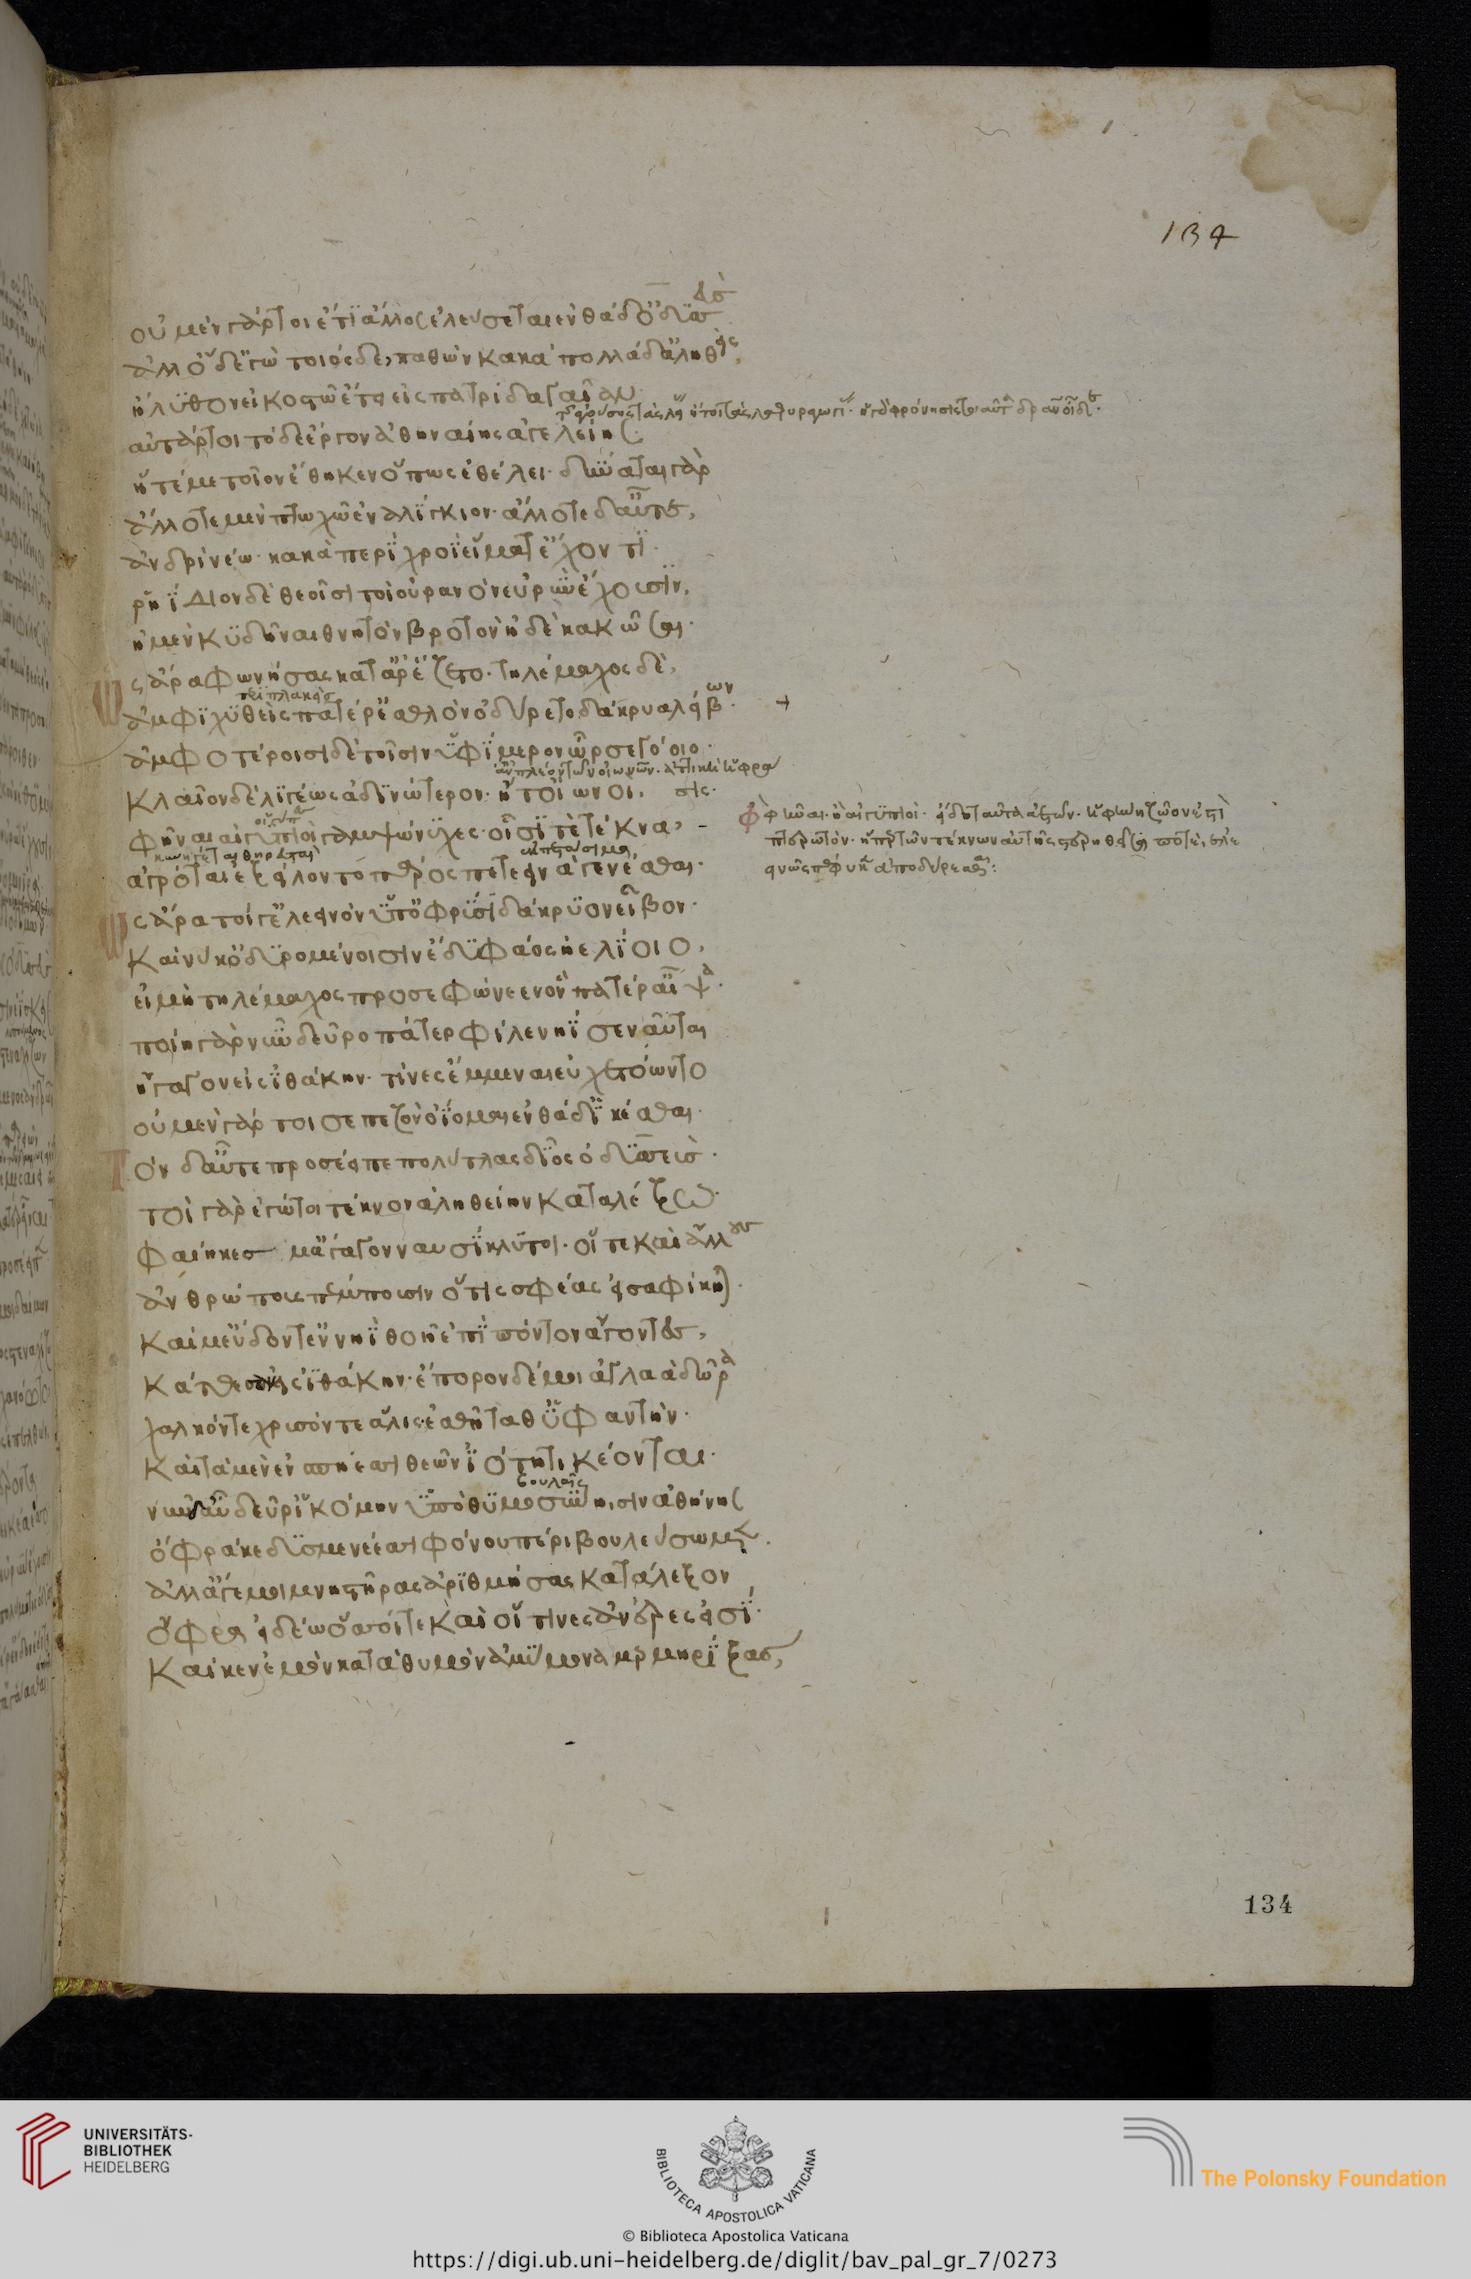 134
οὐ μὲν γάρ τοι ἔτι ἄλλος ἐλεύσεται ἐνθάδ' ὀδυσσεύς
ἀλλ' ὅδ' ἐγὼ τοιόσδε, παθὼν κακὰ πολλὰ δ' ἀληθείς,
ἤλυθον εἰκοστῶ ἔτει ἐς πατρίδα γαῖαν·
αὐτάρ τοι τόδε ἔργον ἀθηναίης ἀγελείης·
ἥ τέ με τοῖον ἔθηκεν ὅπως ἐθέλει· δύναται γὰρ
ἄλλοτε μὲν πτωχῶ ἐναλίγκιον· ἄλλοτε δ' αὖτε,
ἀνδρὶ νέω· κακὰ περὶ χροῒ εἵματ' ἔχοντι·
ῥηΐδιον δὲ θεοῖσι τοὶ οὐρανὸν εὐρὺν ἔχουσιν,
ἠμὲν κυδῆναι θνητὸν βροτὸν ἠδὲ κακῶσαι·
ὣς ἄρα φωνήσας κατ' ἄρ' ἕζετο· τηλέμαχος δὲ,
περιπλακεὶς
ἀμφιχυθεὶς πατέρ' ἐσθλὸν ὀδύρετο δάκρυα λείβων·
ἀμφοτέροισι δὲ τοῖσιν ὑφ' ἵμερον ὦρσε γόοιο·
κλαῖον δὲ λιγέως ἀδινώτερον· ἤ τ' οἰωνοί,
φῆναι αἰγυπιοὶ γαμψώνυχες· οἷσί τε τέκνα,
κυνηγέται θηραταὶ
ἀγρόται ἐξείλοντο πάρος πετεεινὰ γενέσθαι·
ὣς ἄρα τοίγ' ἐλεεινὸν ὑπ' ὀφρύσι δάκρυον εἶβον·
καί νύ κ' ὀδυρομένοισιν ἔδυ φάος ἠελίοιο,
εἰ μὴ τηλέμαχος προσεφώνεεν ὃν πατέρ' αἶψα·
ποίη γὰρ νῦν δεῦρο πάτερ φίλε νηΐ σε ναῦται
ἤγαγον εἰς ἰθάκην· τίνες ἔμμεναι εὐχετόωντο
οὐ μὲν γάρ τοί σε πεζὸν ὀΐομαι ἐνθάδ' ἱκέσθαι·
τὸν δ' αὖτε προσέειπε πολύτλας δῖος ὀδυσσεύς·
τοὶ γὰρ ἐγώ τοι τέκνον ἀληθείην καταλέξω·
φαίηκες μ' ἄγαγον ναυσίκλυτοι· οἵ τε καὶ ἄλλους
ἀνθρώπους πέμπουσιν ὅτις σφέας εἰσαφίκηται·
καί μ' εὕδοντ' ἐν νηῒ θοῆ ἐπὶ πόντον ἄγοντες,
κάτθεσαν εἰς ἰθάκην· ἔπορον δέ μοι ἀγλαὰ δῶρα
χαλκόν τε χρυσόν τε ἅλις ἐσθῆτά θ' ὑφαντήν·
καὶ τὰ μὲν ἐν σπήεσι θεῶν ἰότητι κέονται·
βουλαῖς
νῦν αὖ δεῦρ' ἱκόμην ὑποθυμοσύνησιν ἀθήνης
ὄφρα κε δυσμενέεσι φόνου πέρι βουλεύσωμεν·
ἀλλ' ἄγε μοι μνηστῆρας ἀριθμήσας κατάλεξον
ὄφρα εἰδέω ὅσσοι τε καὶ οἵ τινες ἀνδρες εἰσί·
καί κεν ἐμὸν κατὰ θυμὸν ἀμύμονα μερμηρίξας,
φῆναι· ἢ αἰγυπιοί· εἴδη ταῦτα ἀετῶν· ἡ φήνη ζῶον ἐστὶ
πτερωτόν· ἥπερ τῶν τέκνων αὐτῆς στερηθεῖσα ποτὲ, ἐλε
εινῶς πέφυκεν ἀποδύρεσθαι:
134
UNIVERSITÄTS-
BIBLIOTHEK
HEIDELBERG
BIBLIOTECA APOSTOLICA VATICANA
© Biblioteca Apostolica Vaticana
The Polonsky Foundation
https://digi.ub.uni-heidelberg.de/diglit/bav_pal_gr_7/0273